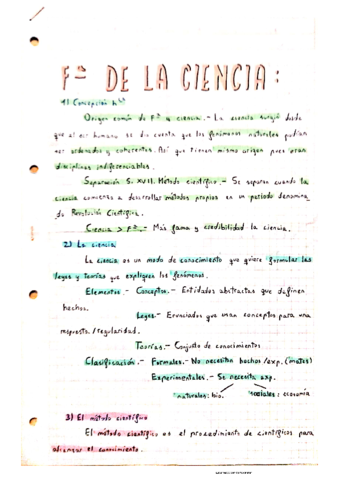 Fª DE LA CIENCIA:
1) Concepción hca
Origen común de Fª y ciencia.- La ciencia surgió desde
que el ser humano se dio cuenta que los fenómenos naturales podían
ser ordenados y coherentes. Así que tienen mismo origen pues eran
disciplinas indiferenciables.
Separación S. XVII. Método científico.- Se separan cuando la
ciencia comienza a desarrollar métodos propios en un período denomina
do Revolución Científica.
Ciencia > Fª.- Más fama y credibilidad la ciencia.
2) La ciencia
La ciencia es un modo de conocimiento que quiere formular las
leyes y teorías que expliquen los fenómenos.
Elementos.- Conceptos.- Entidades abstractas que definen
hechos.
Leyes.- Enunciados que usan conceptos para una
respuesta./regularidad.
Teorías.- Conjunto de conocimientos
Clasificación.- Formales.- No necesitan hechos/exp. (mates)
Experimentales.- Se necesita exp.
naturales: bio. sociales: economía
3) El método científico
El método científico es el procedimiento de científicos para
alcanzar el conocimiento.